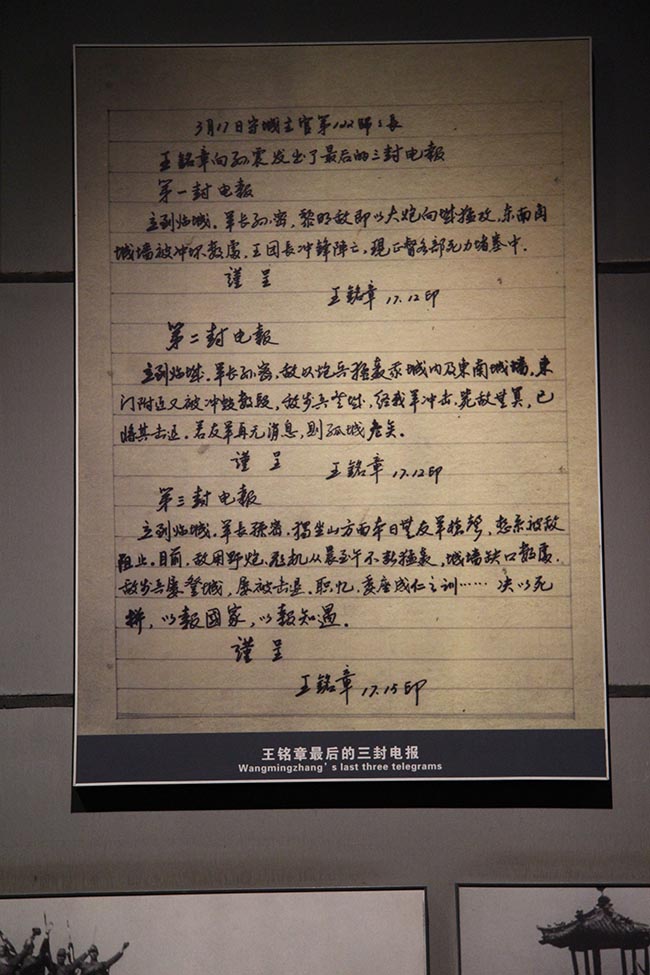 3月17日守城主官第122師师長
王銘章向孙震发出了最后的三封电報
第一封电報
立到临城.军长孙密,黎明敌即以大炮向城猛攻,东南角
城墙被冲坏数處,王团長冲鋒陣亡,現正督各部死力堵塞中.
謹 呈
王銘章 17.12印
第二封电報
立到临城.军长孙密,敌以炮兵猛轰我城内及東南城墙,東
门附近又被冲毁数段,敌步兵登城,经我军冲击,毙敌無算,已
将其击退.若友军再无消息,則孤城危矣.
謹 呈 王銘章 17.12印
第三封电報
立到临城.军长孫密,獨坐山方面本日無友军槍聲,想系被敌
阻止.目前,敌用野炮、飛机从晨至午不断猛轰,城墙缺口數處.
敌步兵屡登城,屡被击退.职忆,委座成仁之训…… 决以死
拼,以報國家,以報知遇.
謹 呈
王銘章 17.15印
王铭章最后的三封电报
Wangmingzhang's last three telegrams